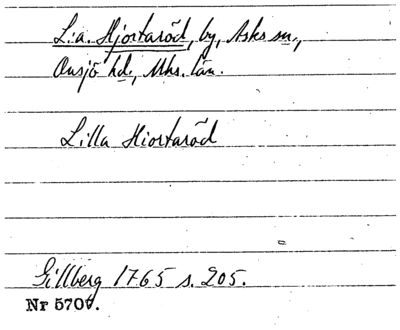 L:a. Hjortaröd, by, Asks sn.,
Onsjö hd., Mhs. län.
Lilla Hiortaröd
Gillberg 1765 s. 205.
Nr 5707.